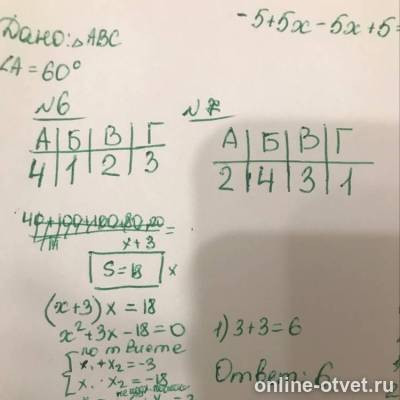 -5+5x-5x+5=
Дано: △ABC
∠A = 60°
№6
А Б В Г
4 1 2 3
№7
А Б В Г
2 4 3 1
x+3
S=18 x
(x+3)x = 18
x²+3x-18=0
по т Виете
x₁+x₂=-3
x₁·x₂=-18
1) 3+3=6
Ответ: 6
online-otvet.ru